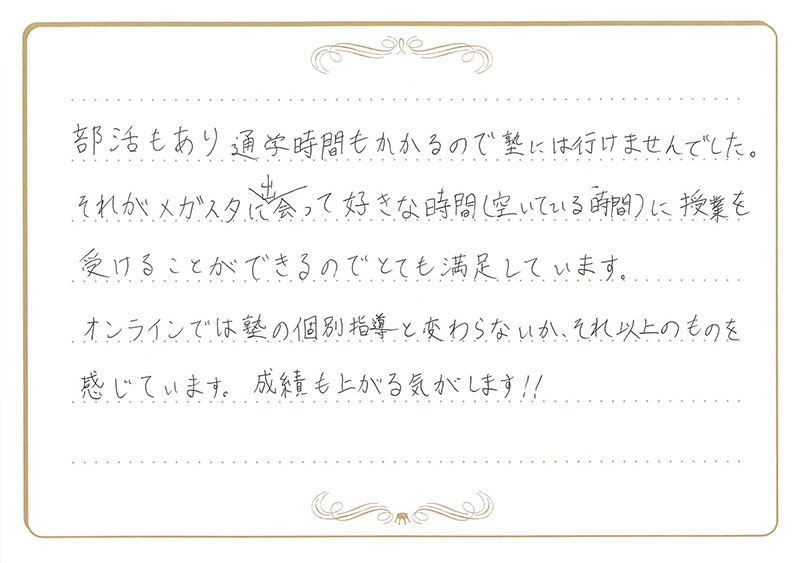 部活もあり通学時間もかかるので塾には行けませんでした。
それがメガスタに出会って好きな時間(空いている時間)に授業を
受けることができるのでとても満足しています。
オンラインでは塾の個別指導と変わらないか、それ以上のものを
感じています。成績も上がる気がします!!